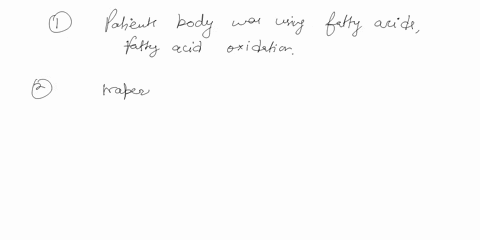 ① Patients body was using fatty acids,
fatty acid oxidation.
②